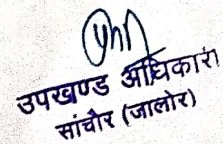 उपखण्ड अधिकारी
सांचौर (जालोर)